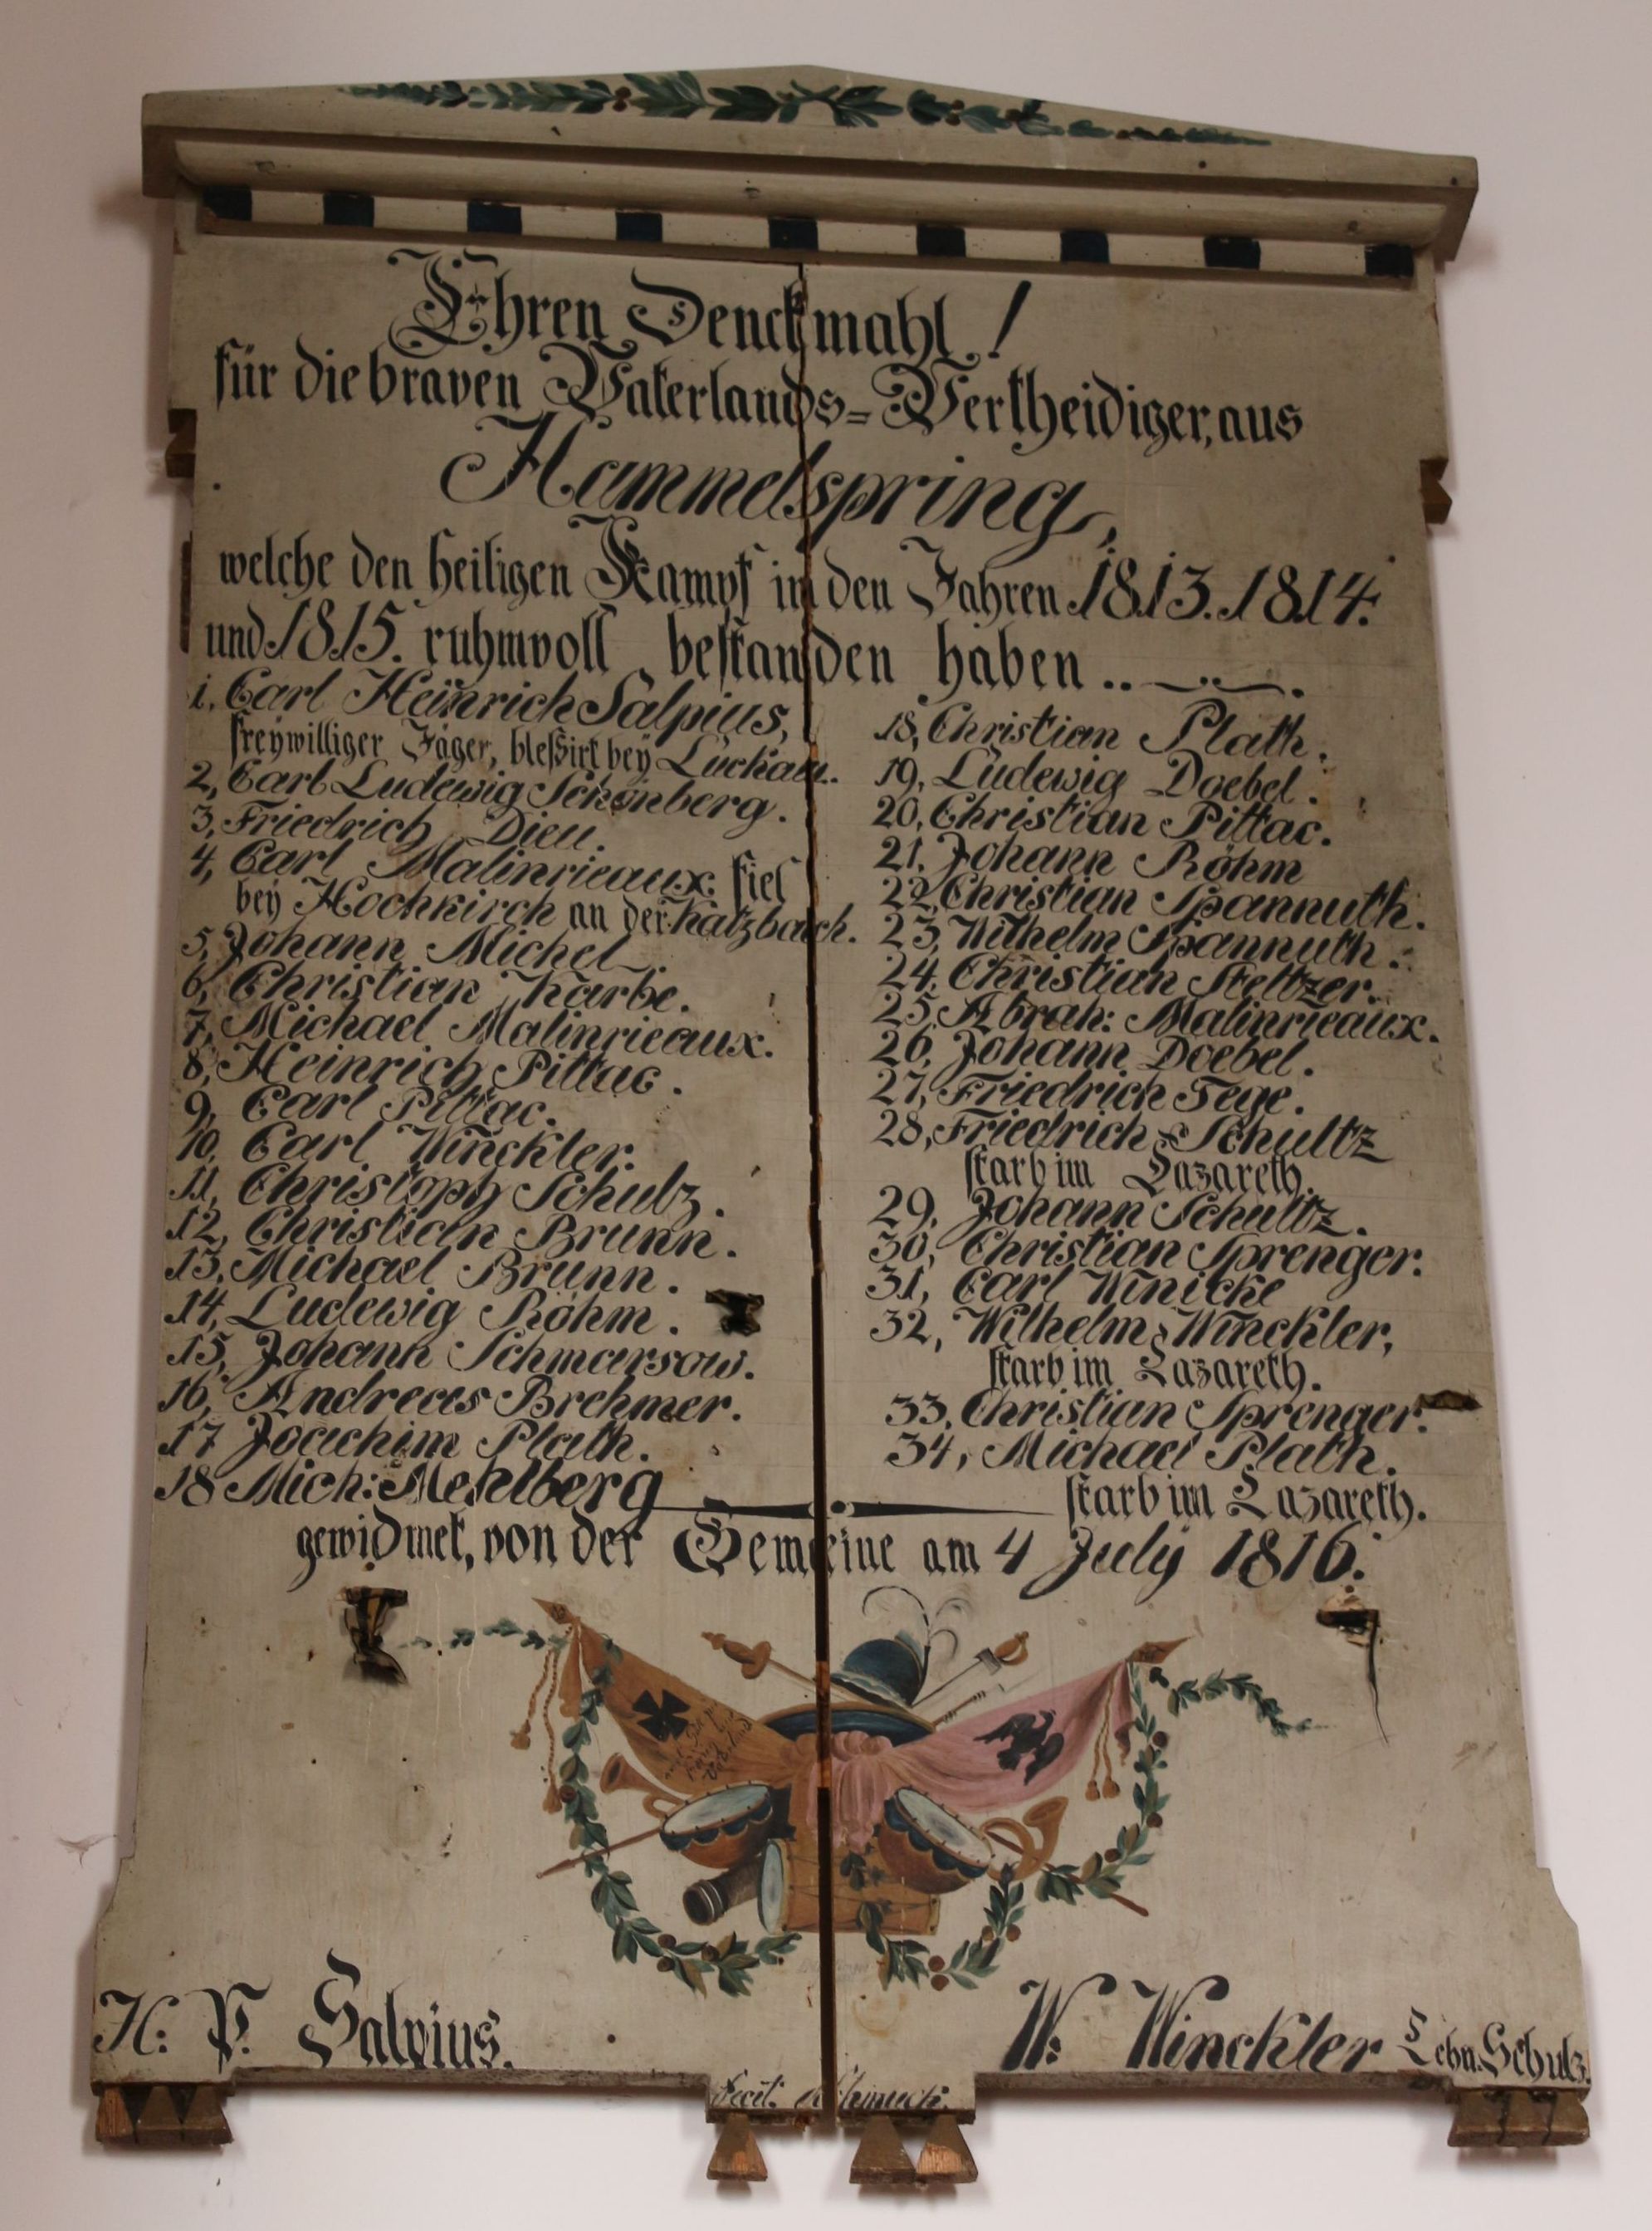 Ehren Denckmahl!
für die braven Vaterlands=Vertheidiger, aus
Hammelspring,
welche den heiligen Kampf in den Jahren 1813. 1814.
und 1815. ruhmvoll bestanden haben..
1, Carl Heinrich Salpius,
freywilliger Jäger, bleßirt bey Luckau.
2, Carl Ludewig Schönberg.
3, Friedrich Dieu.
4, Carl Malinrieaux. fiel
bey Hochkirch an der Katzbach.
5, Johann Michel
6, Christian Karbe.
7, Michael Malinrieaux.
8, Heinrich Pittac.
9, Carl Pittac.
10, Carl Winckler.
11, Christoph Schulz.
12, Christian Brunn.
13, Michael Brunn.
14, Ludewig Röhm.
15, Johann Schmarsow.
16, Andreas Brehmer.
17 Joachim Plath.
18 Mich: Mehlberg
18, Christian Plath.
19, Ludewig Doebel.
20, Christian Pittac.
21, Johann Röhm
22, Christian Spannuth.
23, Wilhelm Spannuth.
24, Christian Steltzer.
25, Abrah: Malinrieaux.
26, Johann Doebel.
27, Friedrich Tege.
28, Friedrich Schultz
starb im Lazareth.
29, Johann Schultz.
30, Christian Sprenger.
31, Carl Winicke
32, Wilhelm Winckler,
starb im Lazareth.
33, Christian Sprenger.
34, Michael Plath.
starb im Lazareth.
gewidmet, von der Gemeine am 4 July 1816.
mit Gott
H: P. Salpius.
W: Winckler Lehn.Schulz.
fecit.